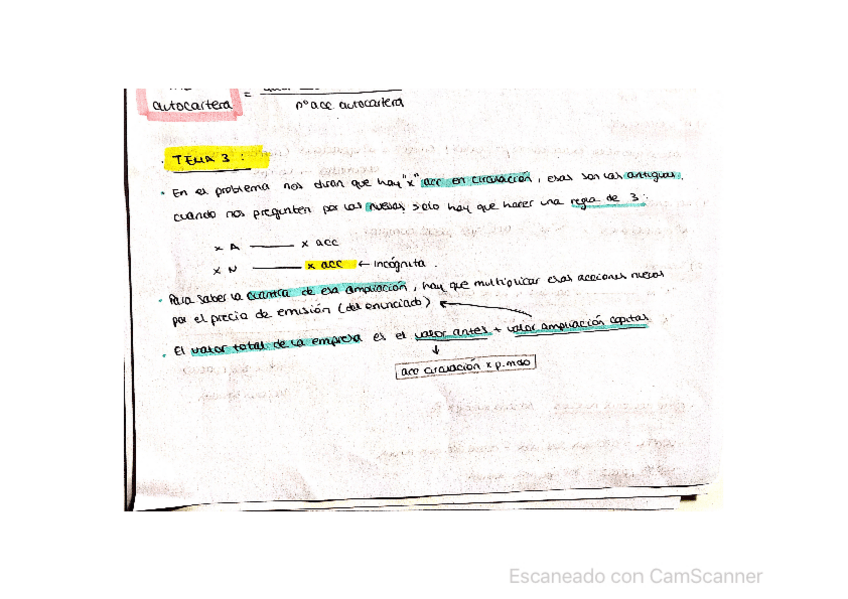 autocartera =
nº acc autocartera
TEMA 3 :
· En el problema nos diran que hay "x" acc en circulación, esas son las antiguas.
cuando nos pregunten por las nuevas, solo hay que hacer una regla de 3:
x A —— x acc
x N —— x acc ← incógnita.
· Para saber la cuantía de esa ampliación, hay que multiplicar esas acciones nuevas
por el precio de emisión (del enunciado)
· El valor total de la empresa es el valor antes + valor ampliación capital
↓
acc circulación x p. mdo
Escaneado con CamScanner